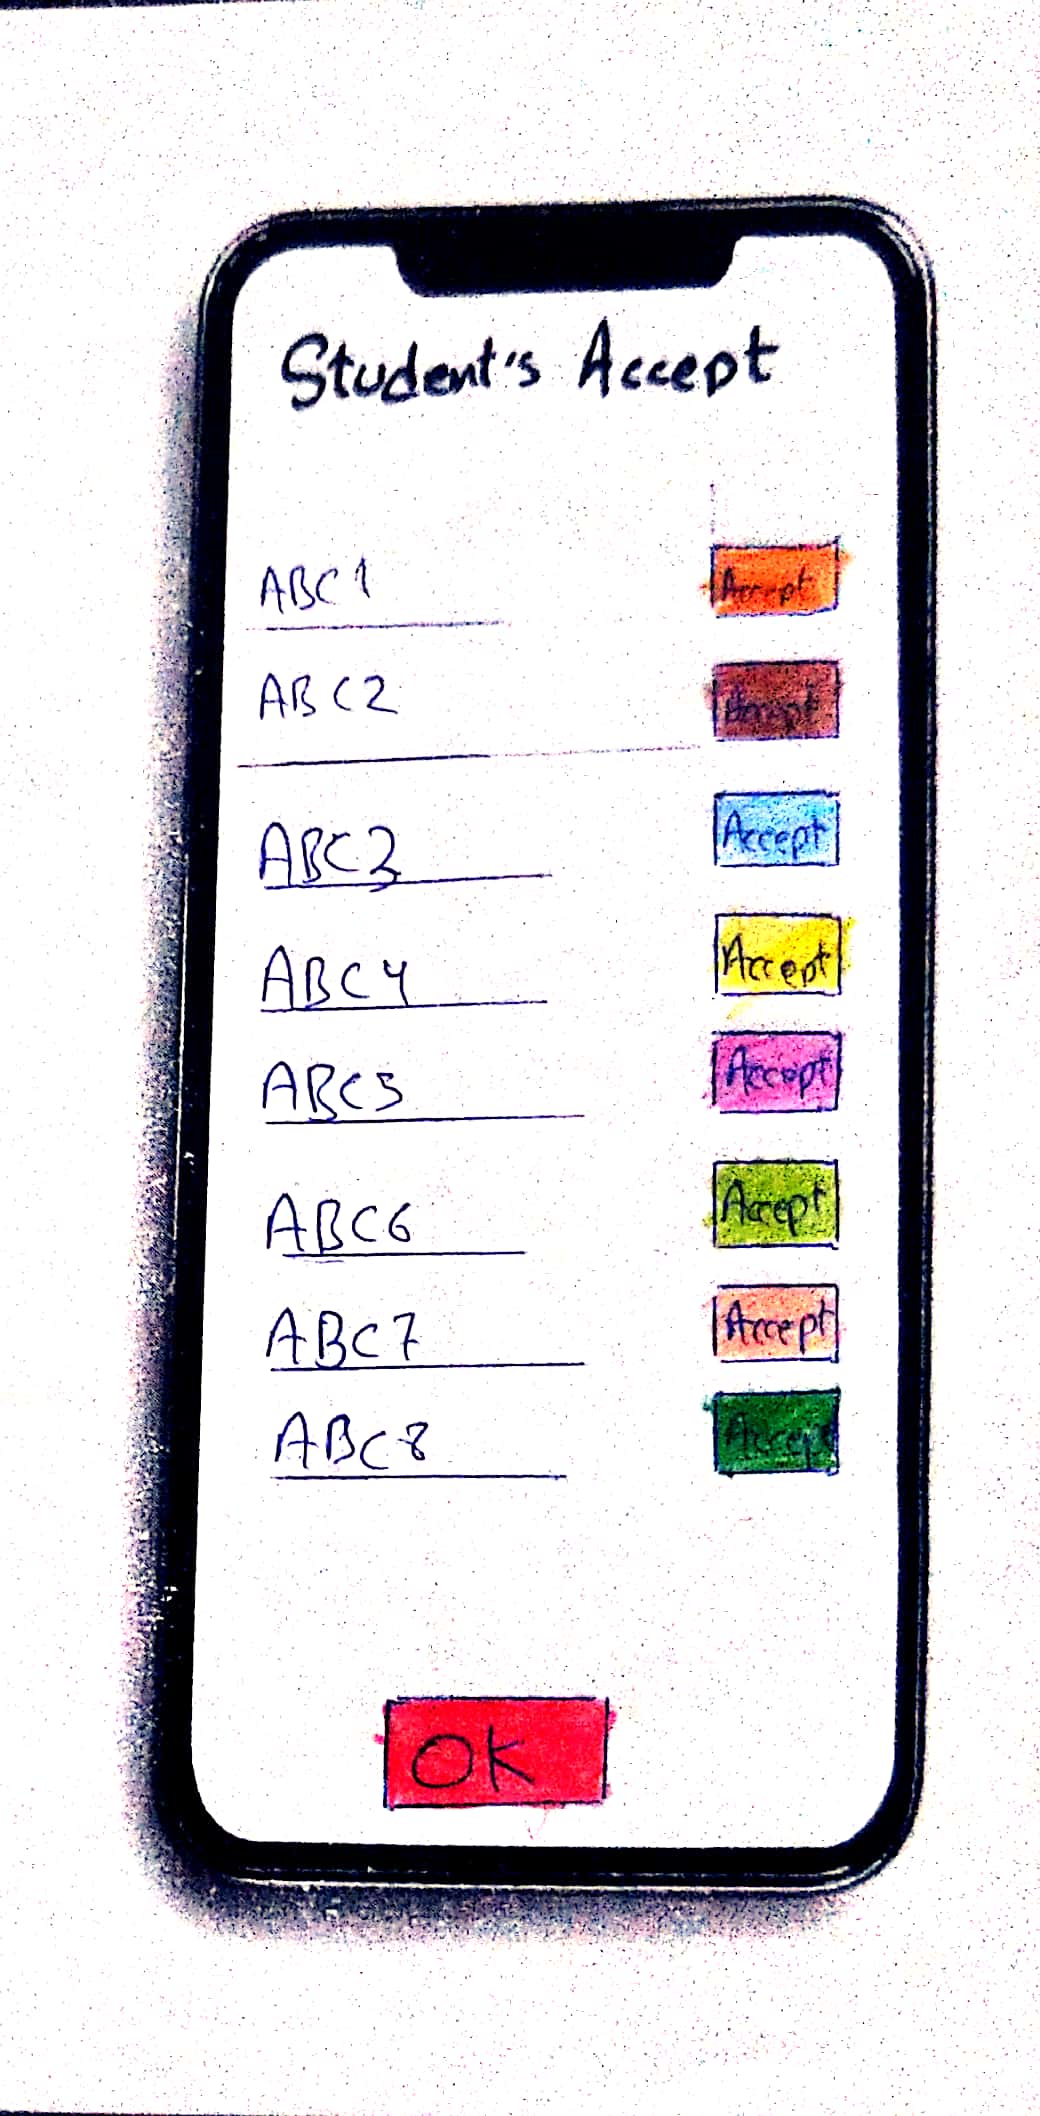 Student's Accept
ABC1 Accept
ABC2 Accept
ABC3 Accept
ABC4 Accept
ABC5 Accept
ABC6 Accept
ABC7 Accept
ABC8 Accept
OK